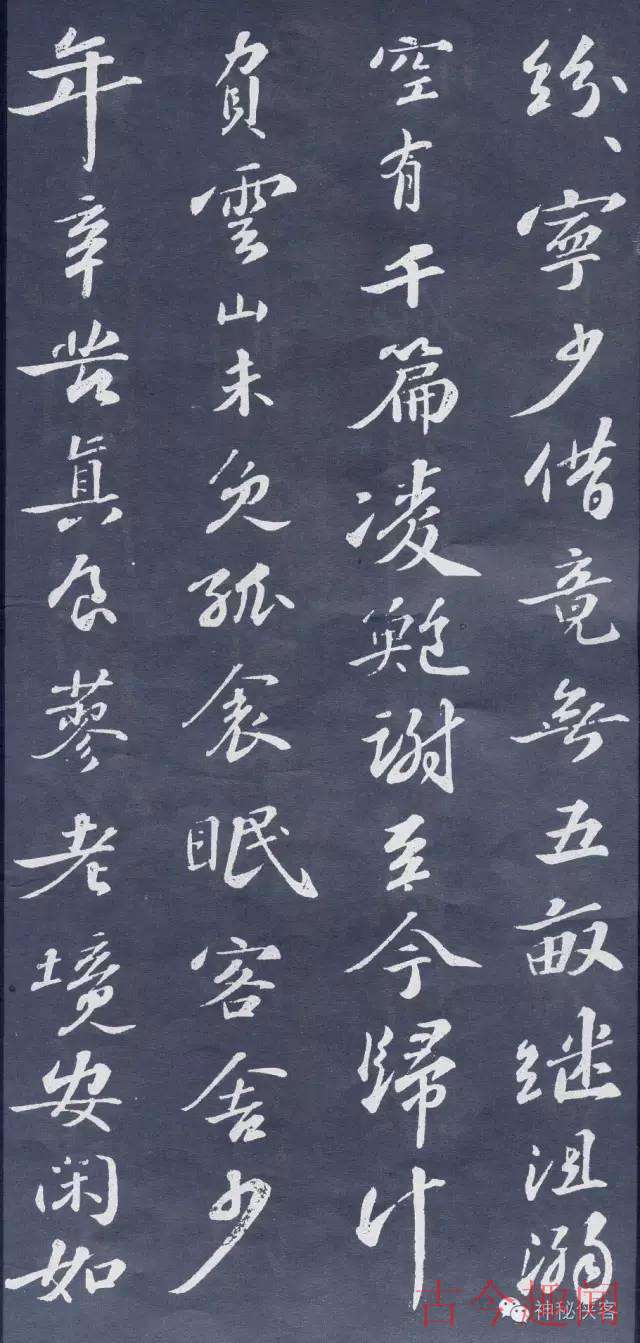 紛、寧少借竟無五畝继沮溺
空有千篇凌鮑謝至今歸計
負雲山未免孤衾眠客舍少
年辛苦眞食蓼老境安閑如
古今趣闻
神秘侠客